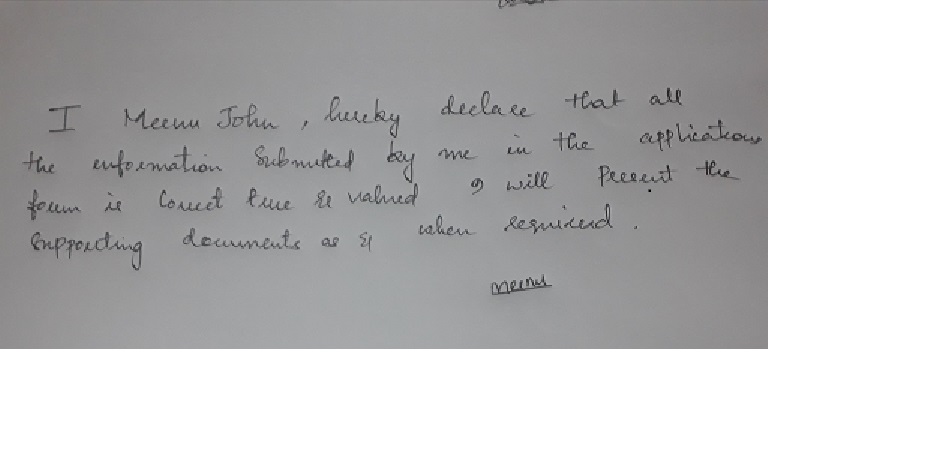 I Meenu John, hereby declare that all
the information Submitted by me in the application
form is Correct true & valued I will Present the
Supporting documents as & when required.
Meenu